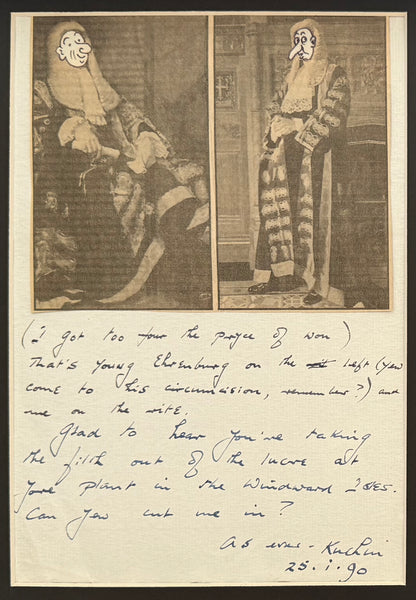 (I got too four the pryce of won)
That's young Ehrenburg on the left (yew
come to his circumcision, remember?) and
me on the rite.
Glad to hear you're taking
the filth out of the lucre at
yore plant in the Windward Isles.
Can yew cut me in?
As ever - Kuchin
25.1.90